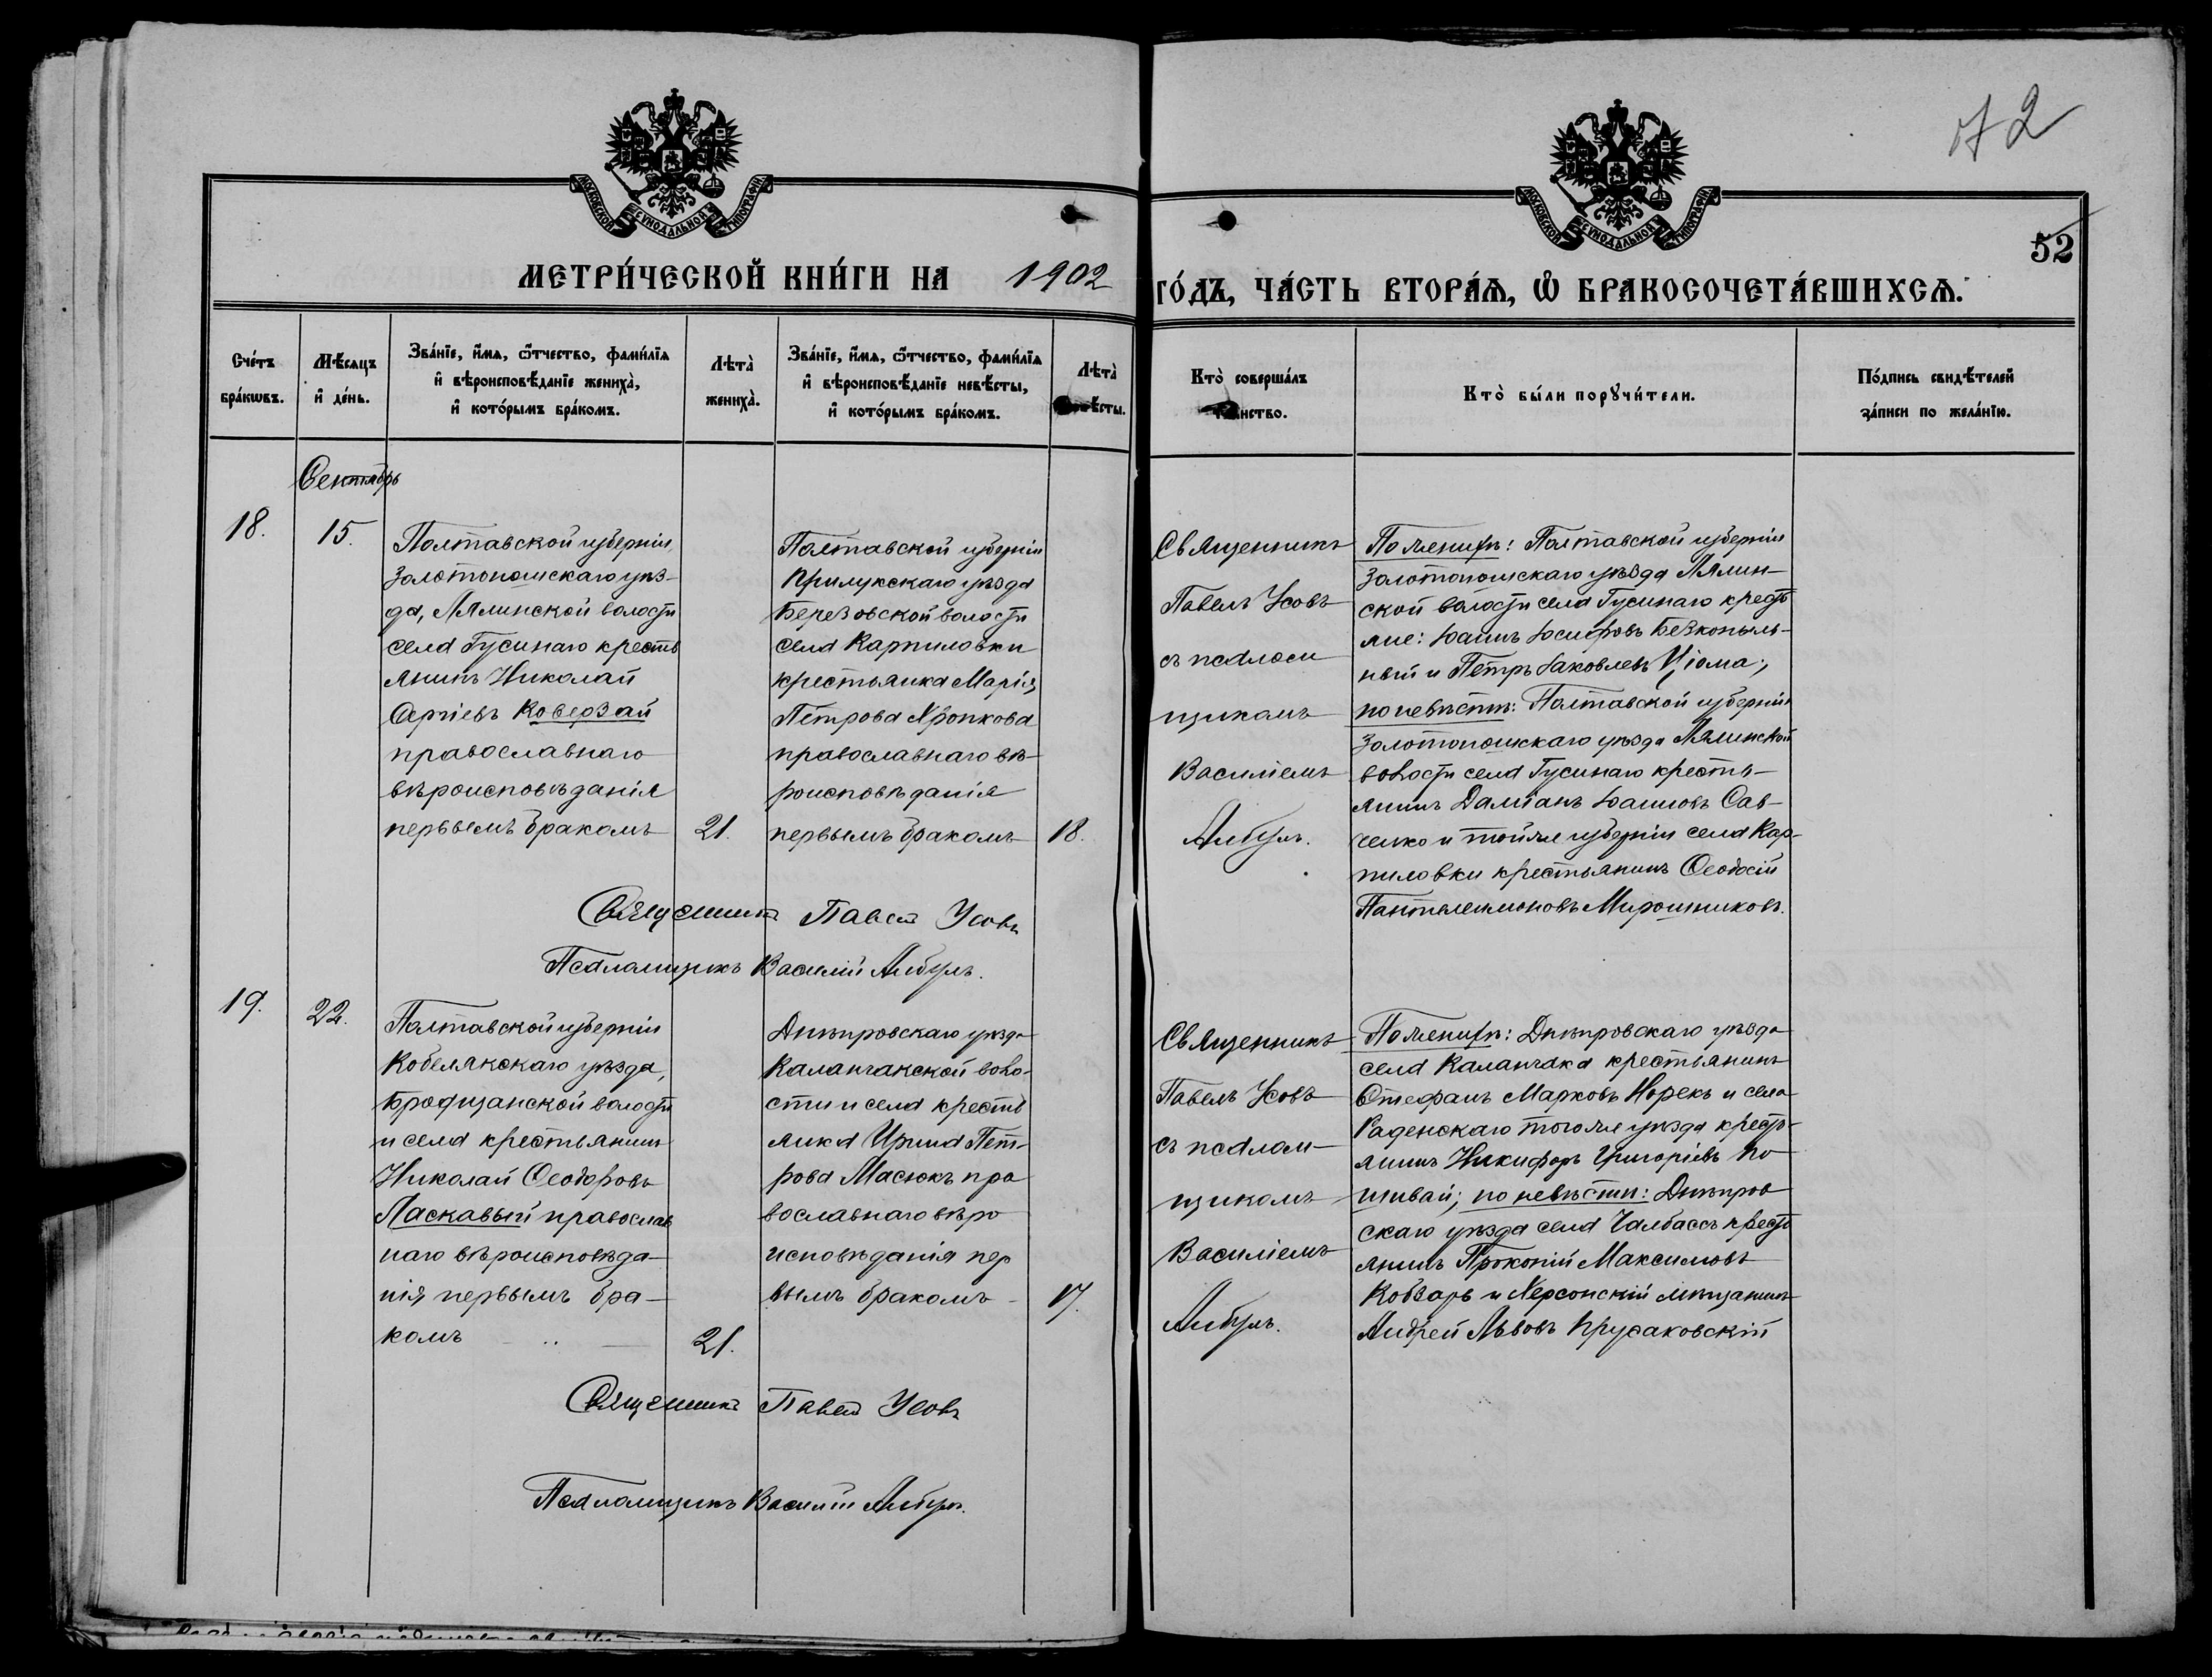 52
МОСКОВСКОЙ СѴНОДАЛЬНОЙ ТИПОГРАФІИ
МОСКОВСКОЙ СѴНОДАЛЬНОЙ ТИПОГРАФІИ
МЕТРИ́ЧЕСКОЙ КНИ́ГИ НА 1902 ГО́ДЪ, ЧА́СТЬ ВТОРА́Ѧ, Ѽ БРАКОСОЧЕТА́ВШИХСѦ.
Сче́тъ бра́кѡвъ.
Мѣ́сяцъ и҆ де́нь.
Зва́нїе, и҆́мѧ, ѻ҆́тчество, фами́лїѧ
и҆ вѣроисповѣ́данїе жениха̀,
и҆ кото́рымъ бра́комъ.
Лѣта̀ жениха̀.
Зва́нїе, и҆́мѧ, ѻ҆́тчество, фами́лїѧ
и҆ вѣроисповѣ́данїе невѣ́сты,
и҆ кото́рымъ бра́комъ.
Лѣта̀ невѣ́сты.
Кто̀ соверша́лъ таинство.
Кто̀ бы́ли порꙋчи́тели.
По́дпись свидѣ́телей
за́писи по жела́нїю.
Сентябрь
18.
15.
Полтавской губерніи
Золотоношскаго уѣз-
да, Лялинской волости
села Гусинаго кресть
янинъ Николай
Сергіевъ Коверзай
православнаго
вѣроисповѣданія
первымъ бракомъ
21.
Полтавской губерніи
Прилукскаго уѣзда
Березовской волости
села Карпиловки
крестьянка Марія
Петрова Хропкова
православнаго вѣ-
роисповѣданія
первымъ бракомъ
18.
Священникъ
Павелъ Усовъ
съ псаломи
щикомъ
Василіемъ
По женихѣ: Полтавской губерніи
Золотоношскаго уѣзда Лялин-
ской волости села Гусинаго кресть
яне: Іоаннъ Іосифовъ Безкопыль-
ный и Петръ Іаковлевъ Цюма;
по невѣстѣ: Полтавской губерніи
Золотоношскаго уѣзда Лялинской
волости села Гусинаго кресть-
янинъ Даміанъ Іоанновъ Сав-
ченко и той же губерніи села Кар-
пиловки крестьянинъ Ѳеодосій
Пантелеимоновъ Мирошниковъ.
Священникъ Павелъ Усовъ
Псаломщикъ Василій
19.
22.
Полтавской губерніи
Кобелякскаго уѣзда,
Бродщанской волости
и села крестьянинъ
Николай Ѳеодоровъ
Ласкавый православ
наго вѣроисповѣда-
нія первымъ бра-
комъ
21.
Днѣпровскаго уѣзда
Каланчакской воло-
сти и села кресть
янка Ирина Пет-
рова Масюкъ пра
вославнаго вѣро
исповѣданія пер
вымъ бракомъ
17.
Священникъ
Павелъ Усовъ
съ псалом-
щикомъ
Василіемъ
По женихѣ: Днѣпровскаго уѣзда
села Каланчака крестьянинъ
Стефанъ Марковъ Норекъ и села
Раденскаго того же уѣзда кресть-
янинъ Никифоръ Григоріевъ По-
шивай; по невѣстѣ: Днѣпров
скаго уѣзда села Чалбассъ кресть
янинъ Прокопій Максимовъ
Кобзарь и Херсонскій мѣщанинъ
Андрей Львовъ Прусаковскій
Священникъ Павелъ Усовъ
Псаломщикъ Василій